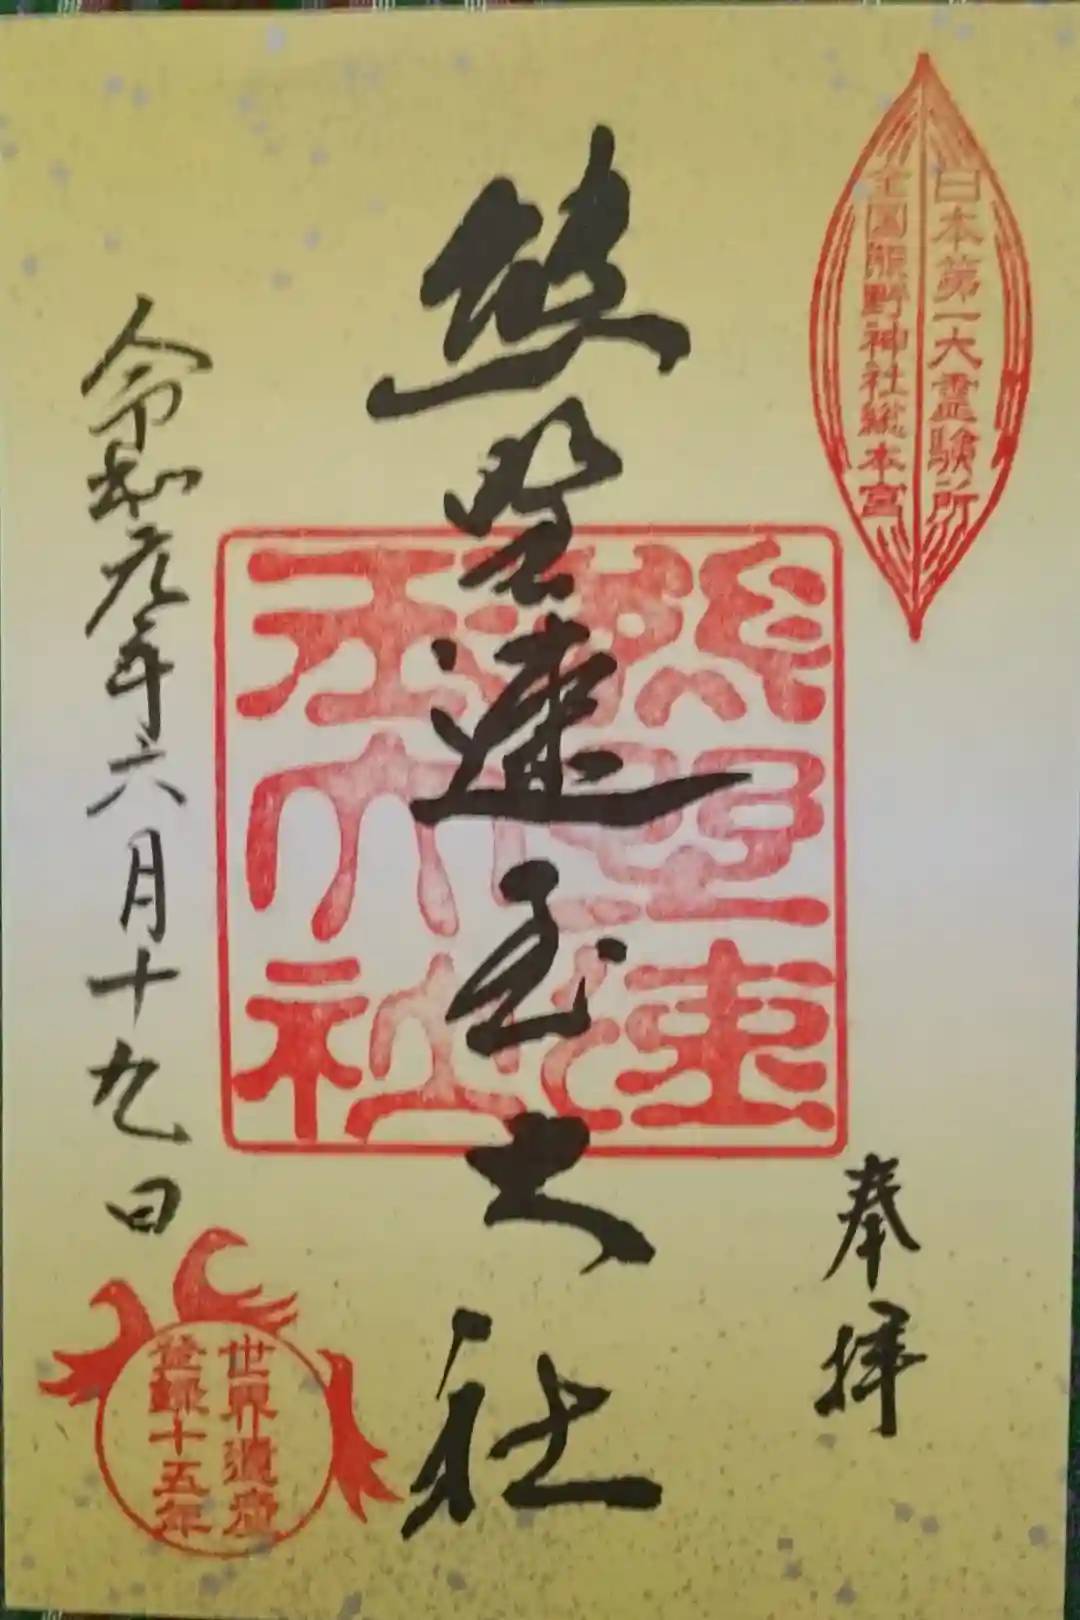 日本第一大霊験所
全国熊野神社総本宮
奉拝
熊野速玉大社
熊野速
玉大社
令和元年六月十九日
世界遺産
登録十五年